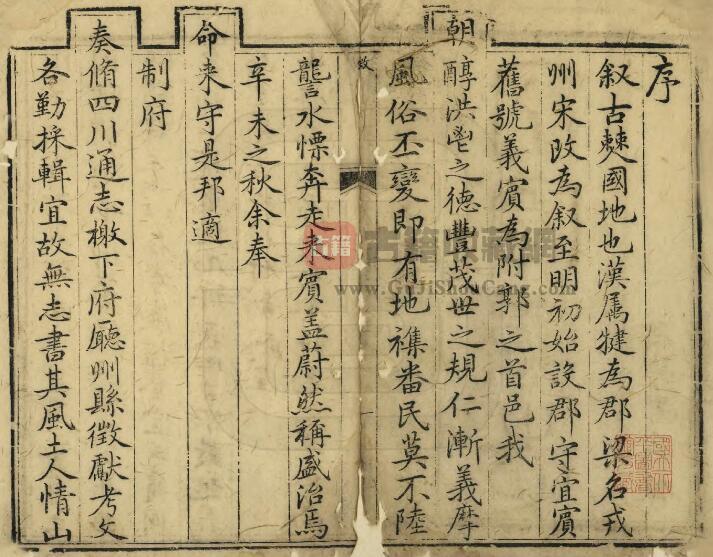 序
叙古僰國地也漢属犍為郡梁名戎
州宋改為叙至明初始設郡守宜賓
舊號義賓為附郭之首邑我
朝醇洪鬯之德豐茂世之規仁漸義摩
風俗丕變即有地襍番民莫不陸
讋水慄奔走来賓盖蔚然稱盛治焉
辛未之秋余奉
命来守是邦適
制府
奏脩四川通志檄下府廳州縣徵獻考文
各勤採輯宜故無志書其風土人情山
古籍
www.GuJiShuCang.com